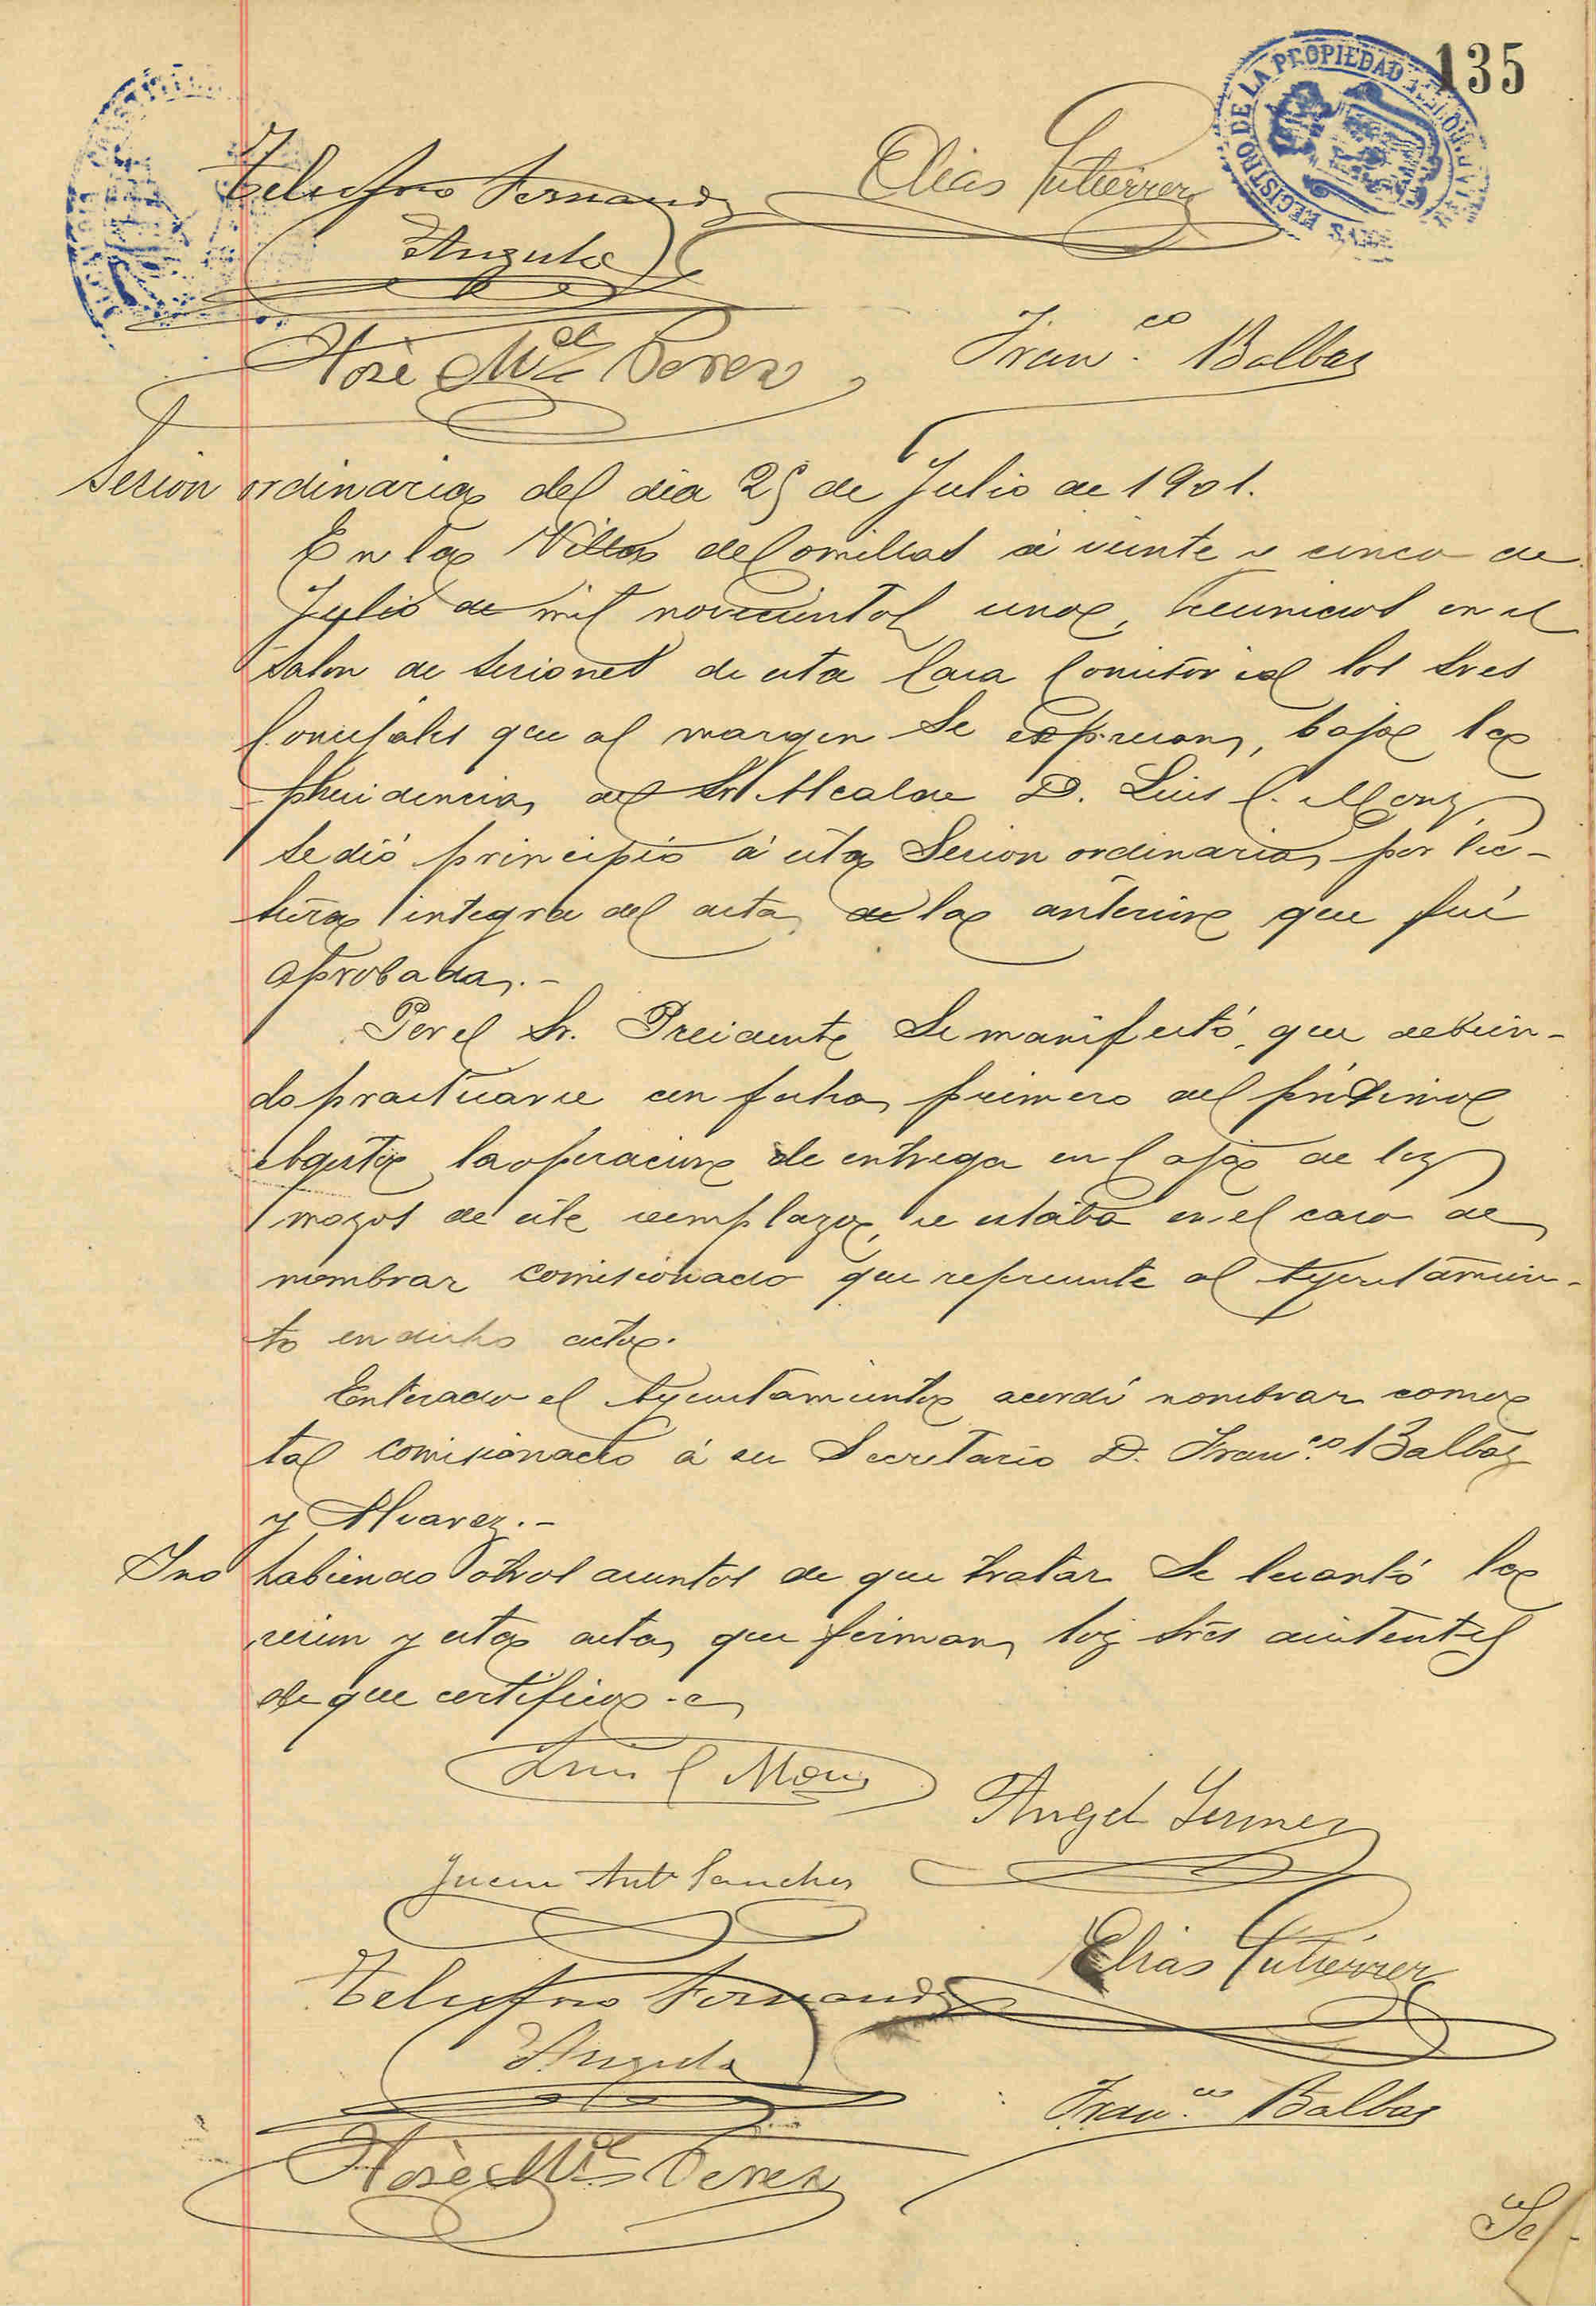 135
REGISTRO DE LA PROPIEDAD
Telesforo Fernandz
Elias Gutierrez
Angulo
José Ml Perez
Franco Balbas
Sesion ordinaria del dia 25 de Julio de 1901.
En la Villa de Comillas á veinte y cinco de
Julio de mil novecientos uno, reunidos en el
salon de sesiones de esta Casa Consistorial los Sres
Concejales que al margen se expresan, bajo la
presidencia del Sr Alcalde D. Luis C. Mony,
se dió principio á esta Sesion ordinaria por lec-
tura integra del acta de la anterior que fué
aprobada.-
Por el Sr. Presidente se manifestó, que debien-
do practicarse con fecha primero del próximo
Agosto la operacion de entrega en Caja de los
mozos de este reemplazo, se estaba en el caso de
nombrar comisionado que represente al Ayuntamien-
to en dicho acto.
Enterado el Ayuntamiento acordó nombrar como
tal comisionado á su Secretario D. Franco Balbas
y Alvarez.-
Y no habiendo otros asuntos de que tratar se levantó la
sesion y esta acta que firman los Sres asistentes
de que certifico.-
Luis C Mony
Angel Germez
Juan Ant Sanchez
Elias Gutierrez
Telesforo Fernandz
Angulo
Franco Balbas
José Ml Perez
Se-